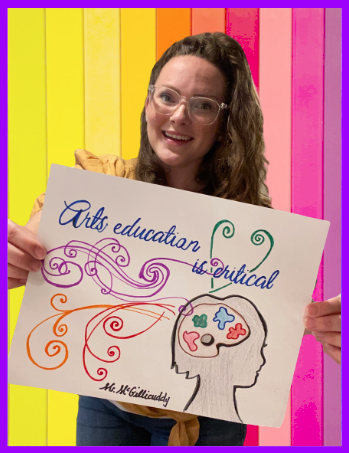 Arts education
is critical
Ms. McGillicuddy